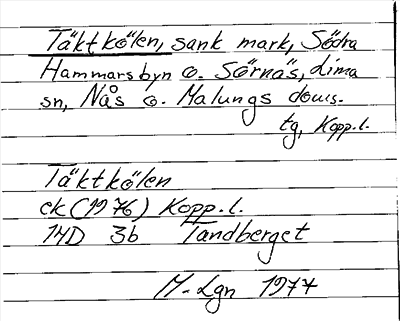 Täktkölen, sank mark, Södra
Hammarsbyn o. Sörnäs, Lima
sn, Nås o. Malungs doms.
tg, Kopp.l.
Täktkölen
ek (1976) Kopp.l.
14D 3b Tandberget
M-Lgn 1977